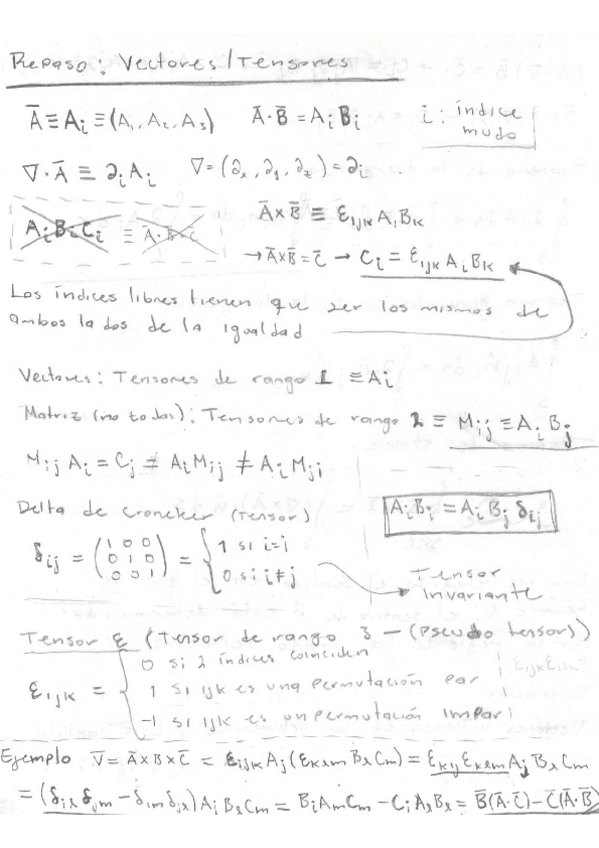 Repaso: Vectores/Tensores
Ā ≡ Aᵢ ≡ (A₁, A₂, A₃)   Ā·B̄ = AᵢBᵢ   i: índice mudo
∇·Ā ≡ ∂ᵢAᵢ   ∇ = (∂ₓ, ∂ᵧ, ∂_z) = ∂ᵢ
AᵢBᵢCᵢ ≡ Ā·B̄×C̄   Ā×B̄ ≡ ε_ijk AⱼBₖ
→ Ā×B̄ = C̄ → Cᵢ = ε_ijk AᵢBₖ
Los índices libres tienen que ser los mismos de
ambos lados de la igualdad
Vectores: Tensores de rango 1 ≡ Aᵢ
Matriz (no todas): Tensores de rango 2 ≡ M_ij ≡ AᵢBⱼ
M_ij Aᵢ = Cⱼ ≠ Aᵢ M_ij ≠ Aᵢ M_ji
Delta de croneker (Tensor)   AᵢBᵢ = AᵢBⱼ δ_ij
δ_ij = (1 0 0
0 1 0
0 0 1) = { 1 si i=j
0 si i≠j
Tensor
invariante
Tensor ε (Tensor de rango 3 – (Pseudo tensor))
ε_ijk = { 0 si 2 índices coinciden
1 si ijk es una permutación par
-1 si ijk es un permutación impar
Ejemplo V̄ = Ā×B̄×C̄ = ε_ijk Aⱼ(ε_klm B_l C_m) = ε_kij ε_klm Aⱼ B_l C_m
= (δ_il δ_jm – δ_im δ_jl) Aⱼ B_l C_m = BᵢA_mC_m – CᵢA_lB_l = B̄(Ā·C̄) – C̄(Ā·B̄)